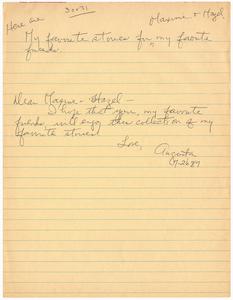 30x31
Maxine + Hazel
Here are
My favorite stories for my favorite
friends.
Dear Maxine + Hazel —
I hope that you, my favorite
friends, will enjoy this collection of my
favorite stories.
Love,
Augusta
7-26-89